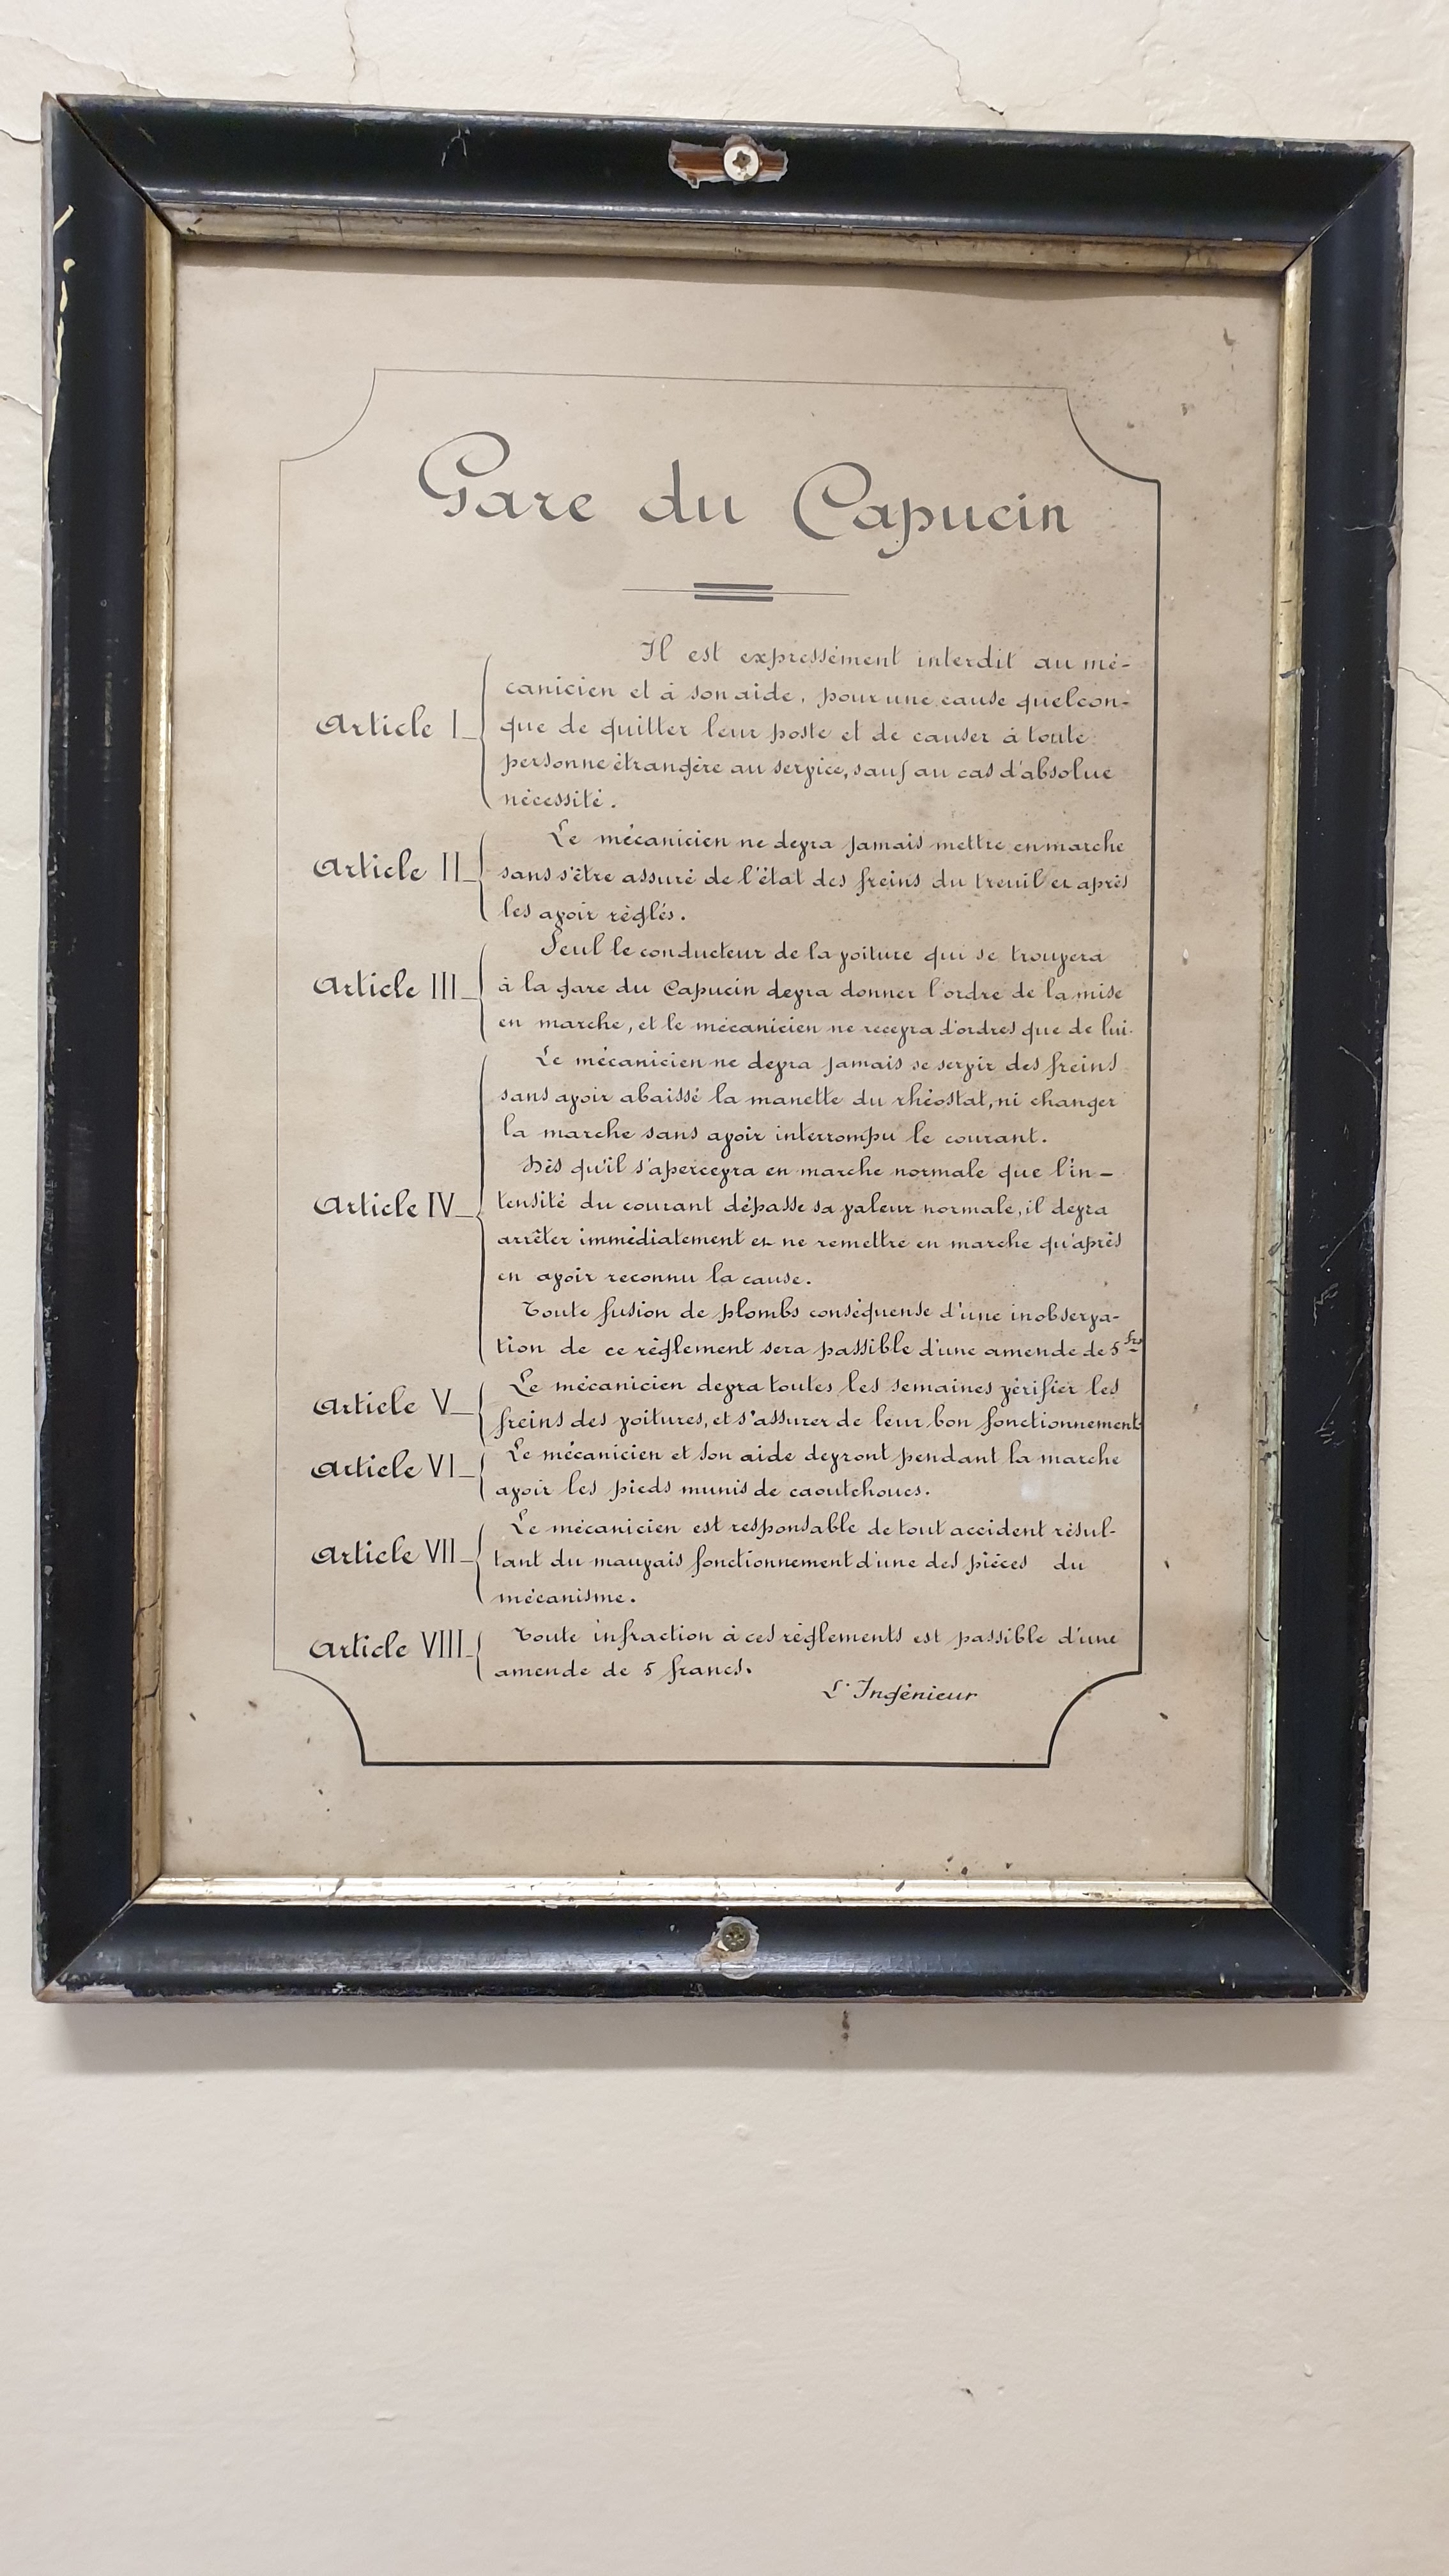 Gare du Capucin
Il est expressément interdit au mé-
canicien et à son aide, pour une cause quelcon-
Article I
que de quitter leur poste et de causer à toute
personne étrangère au service, sauf au cas d'absolue
nécessité.
Le mécanicien ne devra jamais mettre en marche
Article II
sans s'être assuré de l'état des freins du treuil et après
les avoir réglés.
Seul le conducteur de la voiture qui se trouvera
Article III
à la gare du Capucin devra donner l'ordre de la mise
en marche, et le mécanicien ne recevra d'ordres que de lui.
Le mécanicien ne devra jamais se servir des freins
sans avoir abaissé la manette du rhéostat, ni changer
la marche sans avoir interrompu le courant.
Dès qu'il s'apercevra en marche normale que l'in-
Article IV
tensité du courant dépasse sa valeur normale, il devra
arrêter immédiatement et ne remettre en marche qu'après
en avoir reconnu la cause.
Toute fusion de plombs conséquense d'une inobserva-
tion de ce règlement sera passible d'une amende de 5 frs
Le mécanicien devra toutes les semaines vérifier les
Article V
freins des voitures, et s'assurer de leur bon fonctionnement.
Le mécanicien et son aide devront pendant la marche
Article VI
avoir les pieds munis de caoutchoucs.
Le mécanicien est responsable de tout accident résul-
Article VII
tant du mauvais fonctionnement d'une des pièces du
mécanisme.
Toute infraction à ces règlements est passible d'une
Article VIII
amende de 5 francs.
L'Ingénieur